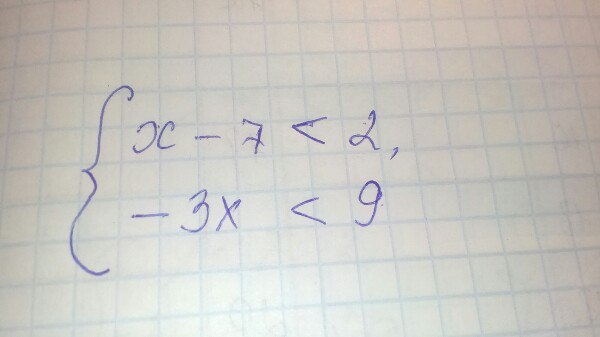 x - 7 < 2,
- 3x < 9